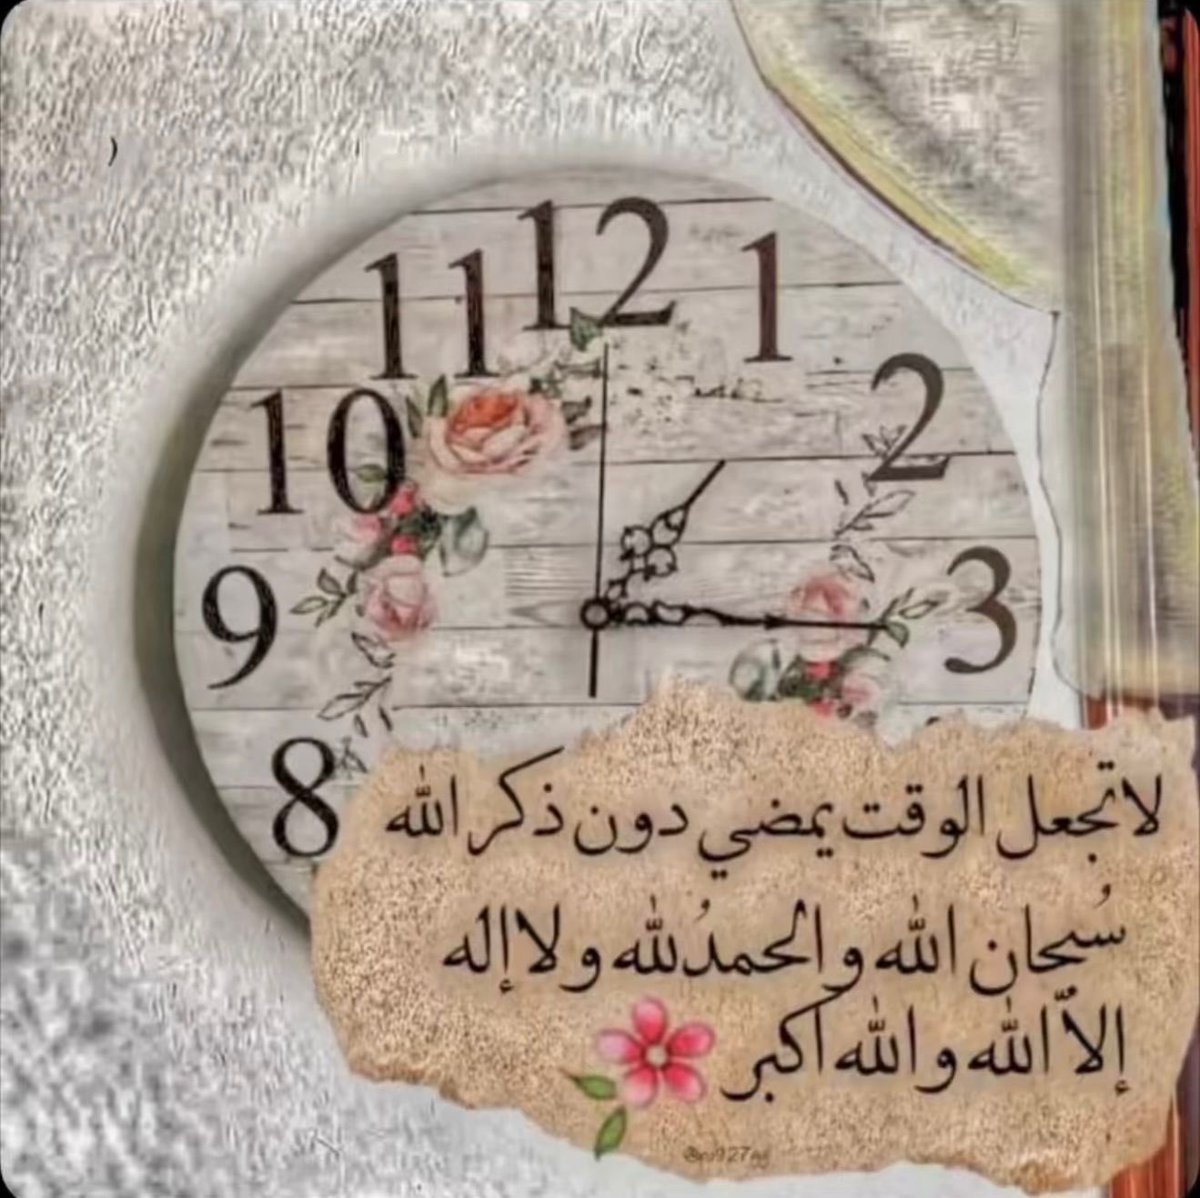 12
11
1
10
2
9
3
8
لا تجعل الوقت يمضي دون ذكر الله
سُبحان الله والحمدُ لله ولا إله
إلاّ الله والله اكبر